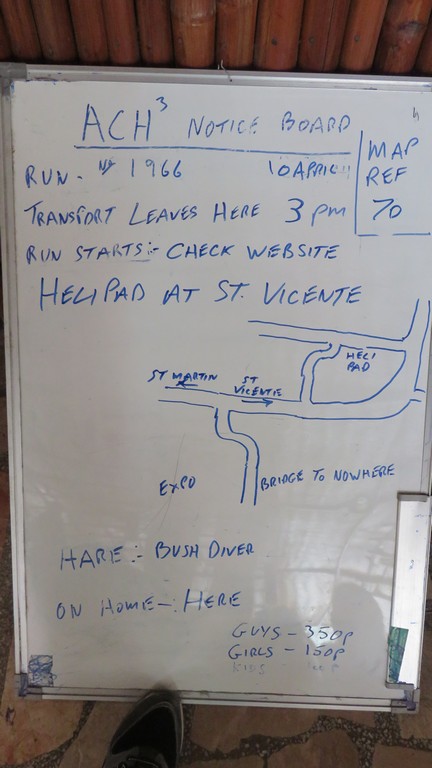 ACH³ NOTICE BOARD
RUN - Nº 1966 10 APRIL
MAP
REF
70
TRANSPORT LEAVES HERE 3 pm
RUN STARTS:- CHECK WEBSITE
HELIPAD AT ST. VICENTE
HELI
PAD
ST MARTIN
ST
VICENTE
EXPO
BRIDGE TO NOWHERE
HARE:- BUSH DIVER
ON HOME-: HERE
GUYS - 350p
GIRLS - 150p